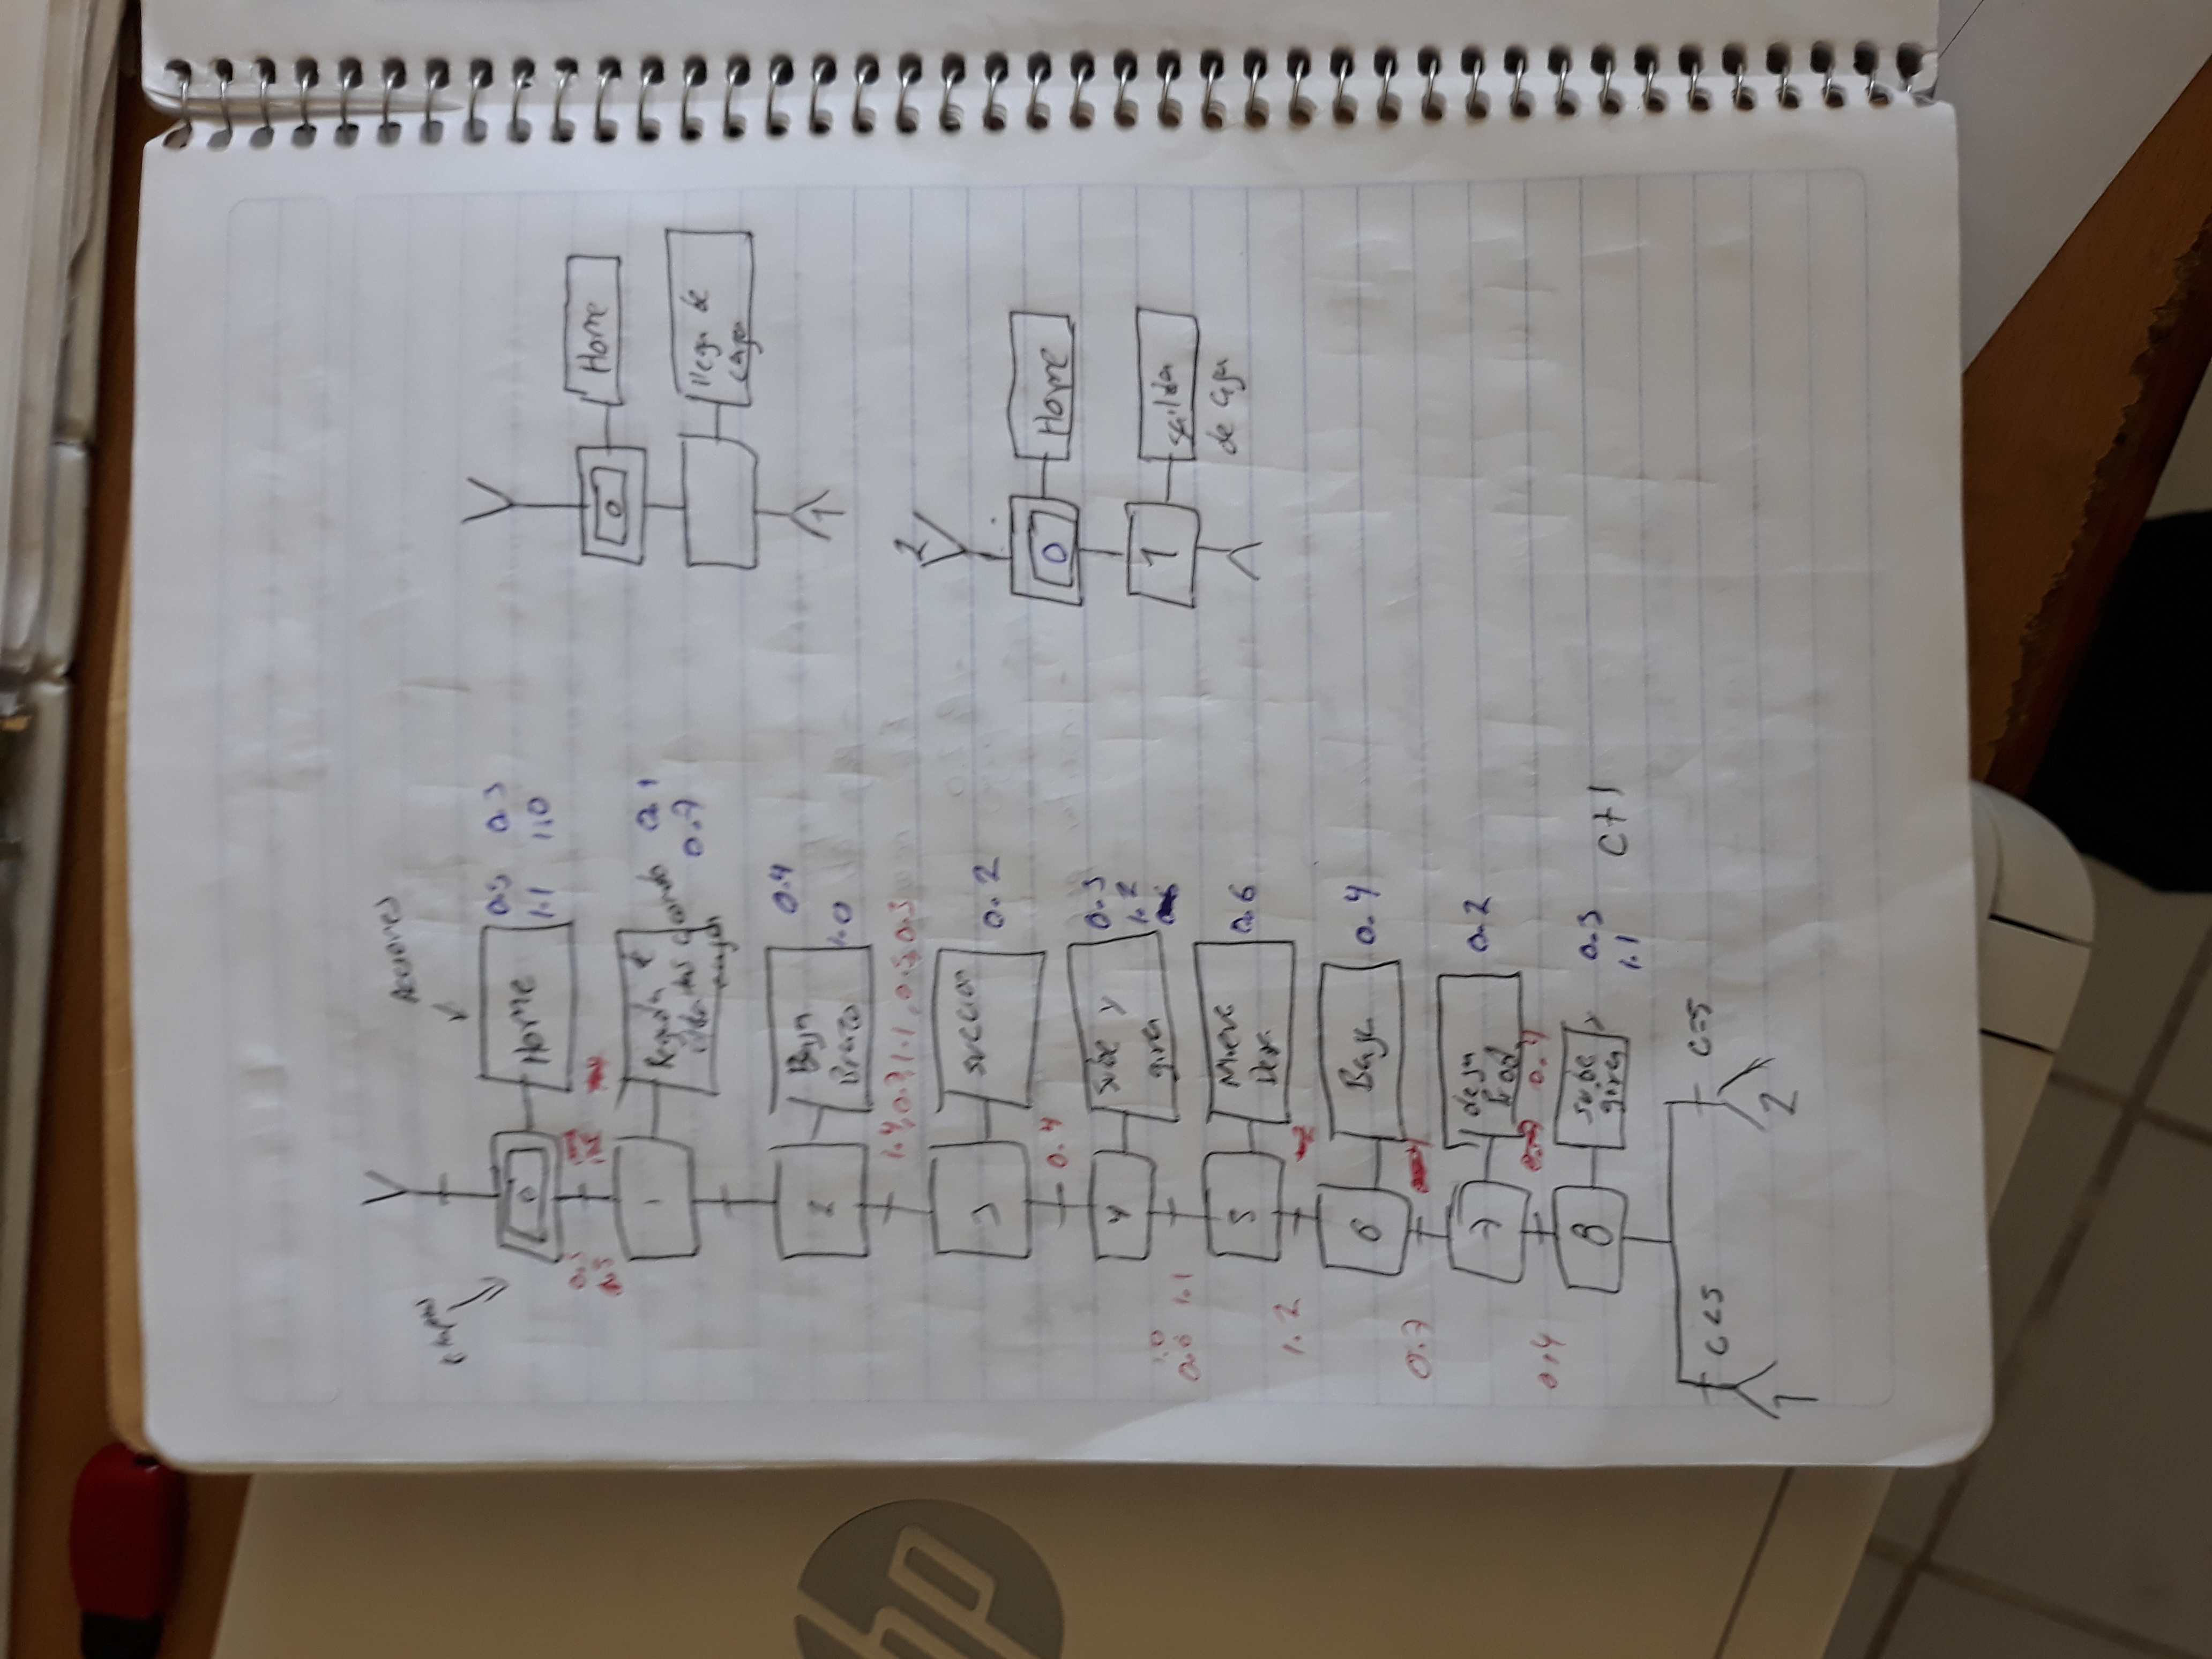 Acciones
0
Home
0.5 0.3
1.1 1.0
0.3
0.5
1
0.1
0.7
2
Baja
Brazo
0.4
1.0
1.4, 0.7, 1.1, 0.5, 0.3
3
succion
0.2
0.4
4
sube y
gira
0.3
1.2
1.0
0.6 1.1
5
Mueve
Der.
0.6
1.2
6
Baja
0.4
0.7
7
deja
Prod.
0.2
0.4
0.4
8
sube y
gira
0.3
1.1
C+1
C<5
C=5
1
2
0
Home
llega de
caja
1
2
0
Home
1
salida
de caja
hp